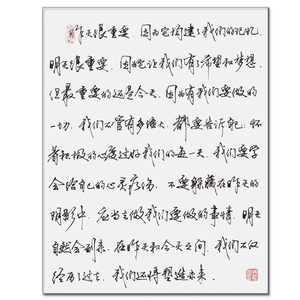 昨天很重要，因为它构建了我们的记忆，
明天很重要，因它让我们有了希望和梦想，
但最重要的还是今天，因为有我们要做的
一切，我们不管有多强大，都要告诉自己：怀
着积极的心度过好我们的每一天，我们要学
会给自己的心灵疗伤，不要躲藏在昨天的
阴影中，应当去做我们要做的事情，明天
自然会到来，在昨天和今天之间，我们不仅
经历了过去，我们还将塑造未来.